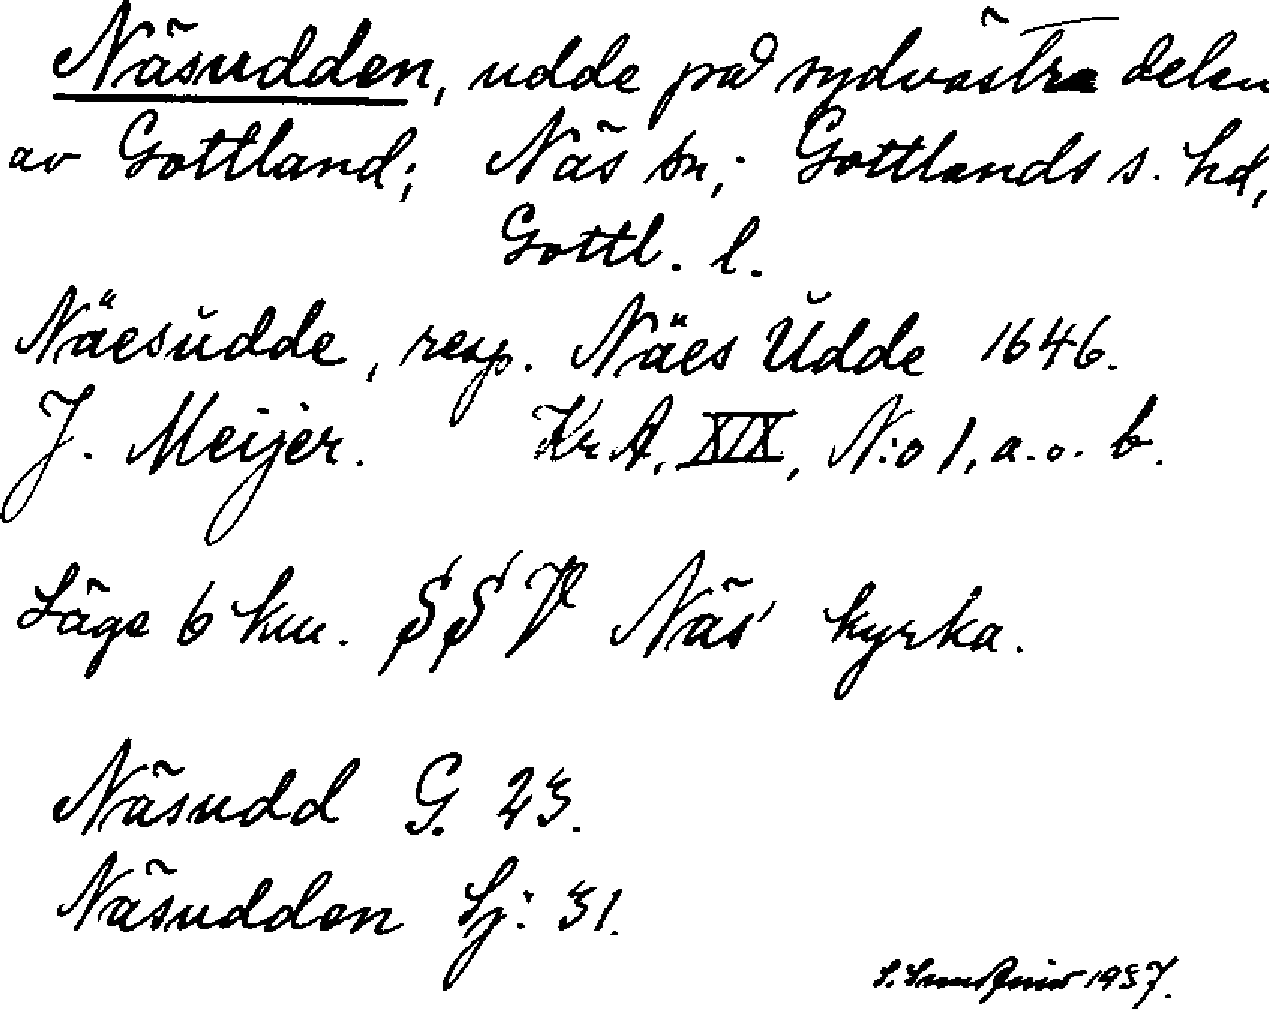 Näsudden, udde på sydvästra delen
av Gottland; Näs sn; Gottlands s. hd,
Gottl. l.
Näesudde, resp. Näes Udde 1646.
J. Meijer. Kr A, XIX, N:o 1, a. o. b.
Läge 6 km. SSV Näs kyrka.
Näsudd G. 23.
Näsudden Sj: 31.
1937.